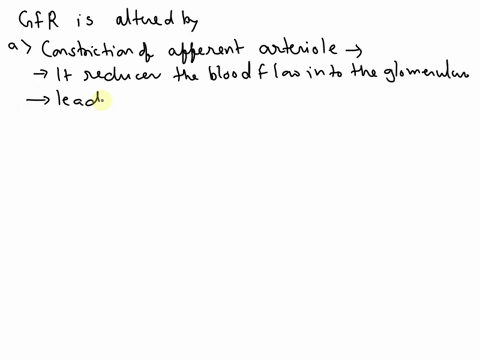 GfR is altered by
a) Constriction of afferent arteriole →
→ It reducer the blood flow into the glomerulus
→ lead